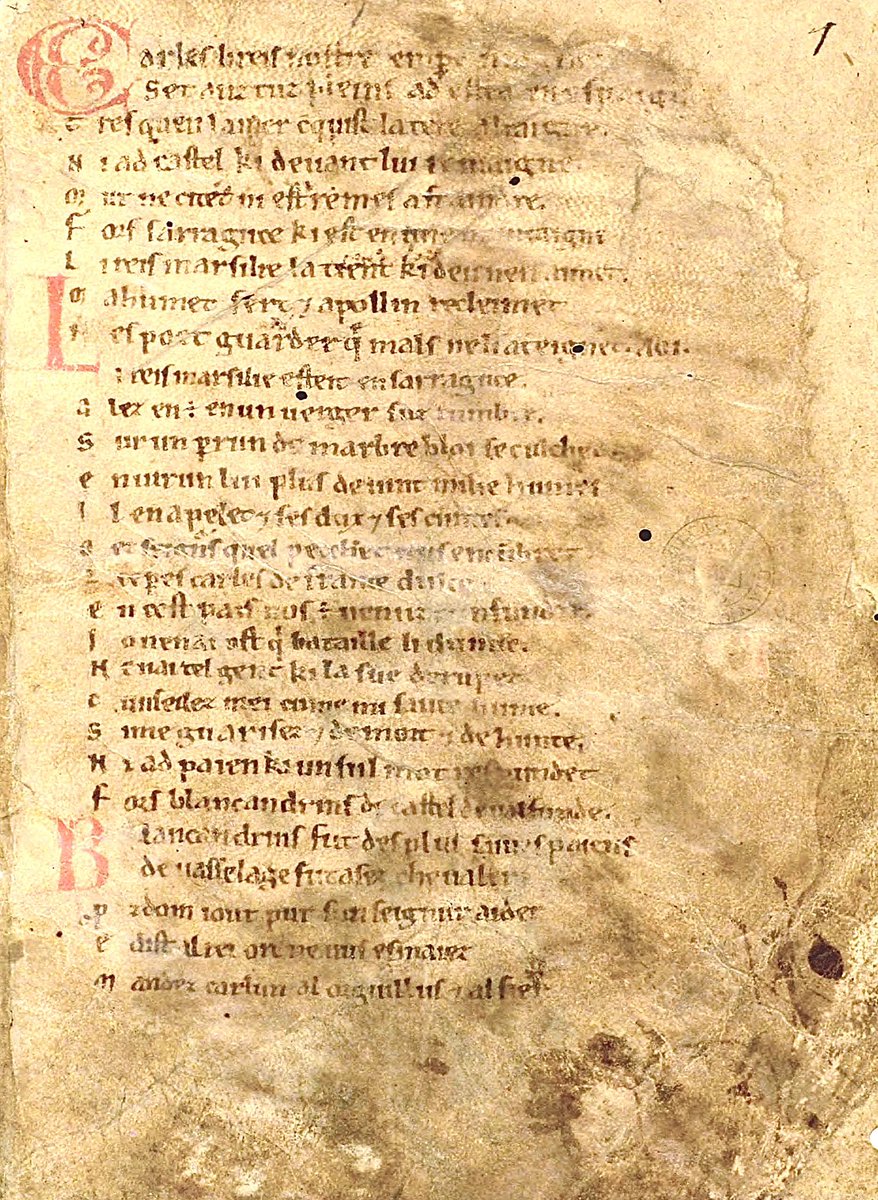 1
Carles li reis nostre emper
Set anz tuz pleins ad estet en espaigne
Tresqu en la mer cquist la tere altaigne.
N i ad castel ki devant lui remaigne.
Mur ne citet ni est remes a fraindre.
Fors sarraguce ki est en une muntaigne
Li reis marsilie la tient ki deu nen aimet.
Mahumet sert ⁊ apollin recleimet
Nes poet guarder q mals ne li ateignet. Aoi.
Li reis marsilie esteit en sarraguce.
Alez en est en un verger suz lumbre.
Sur un perrun de marbre bloi se culchet
Envirun lui plus de vint milie humes
Il en apelet ⁊ ses dux ⁊ ses cuntes
Oez seignurs quel pecchet nus encumbret
Li empes carles de france dulce
En cest pais nos est venuz cunfundre.
Jo nen ai ost q bataille li dunne.
N ai tel gent ki la sue derumpet
Cunseilez mei cume mi saive hume.
Si me guarisez ⁊ de mort ⁊ de hunte.
N i ad paien ki un sul mot respundet
Fors blancandrins de castel de valfunde.
Blancandrins fut des plus saives paiens
De vasselage fut asez chevaler
Prozdom i out pur sun seignur aider
E dist al rei ore ne vus esmaiez
Mandez carlun al orguillus ⁊ al fier